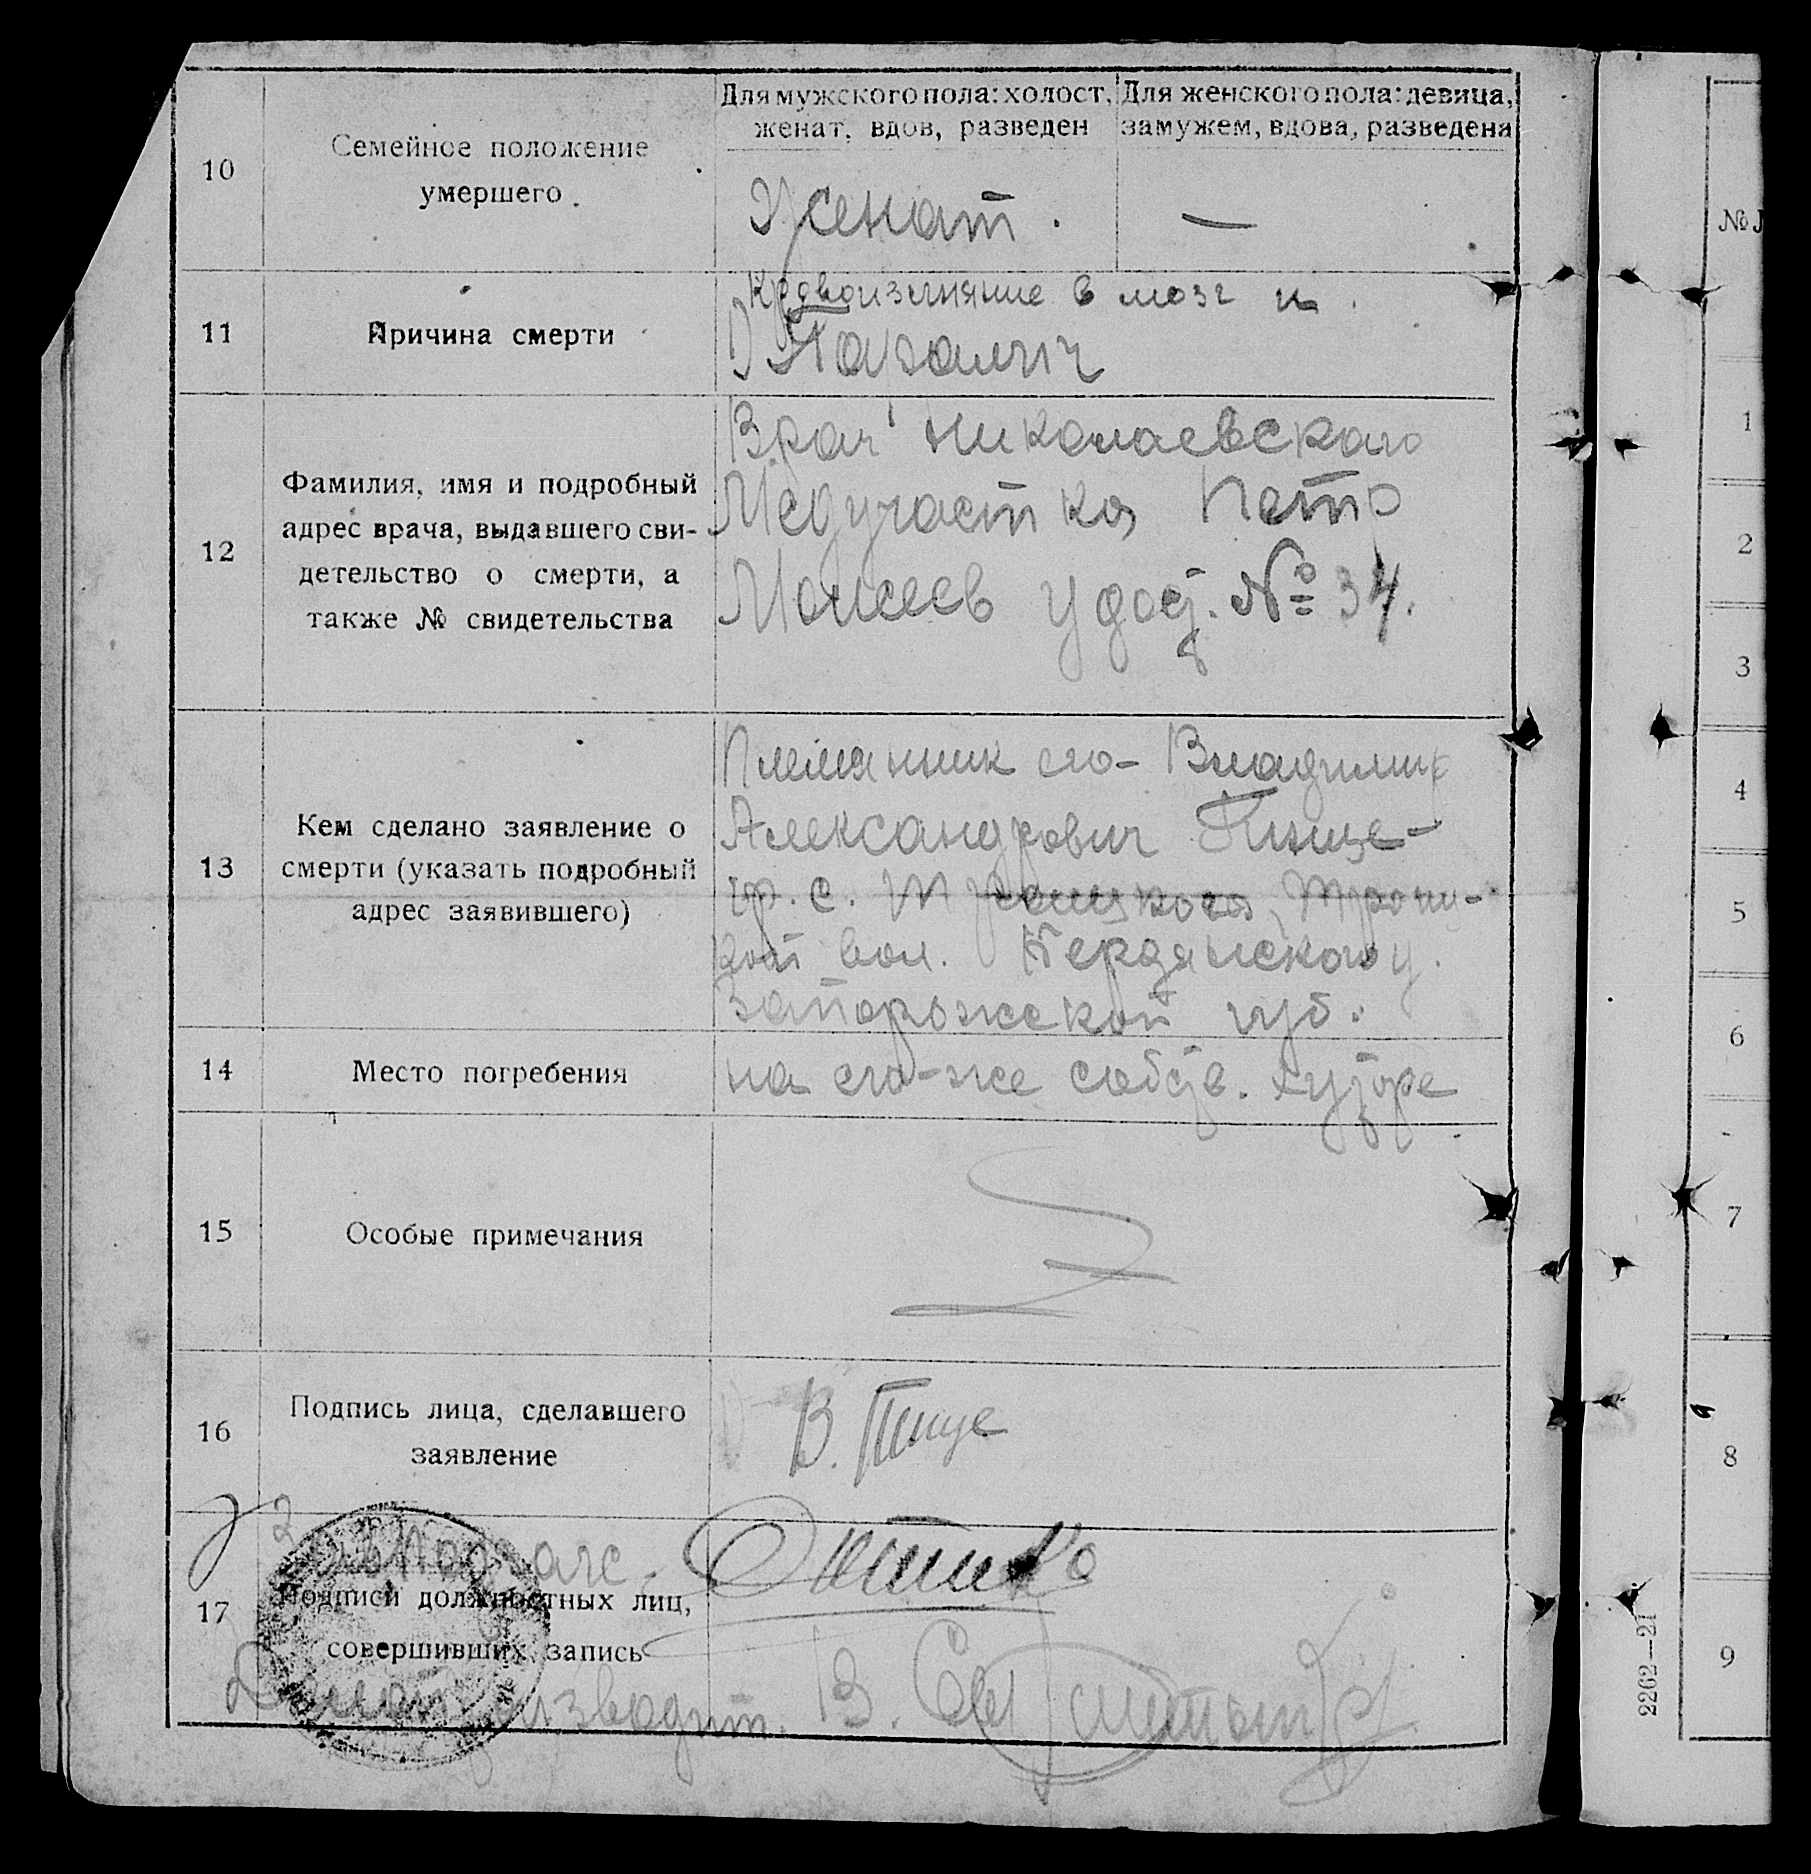 10
Семейное положение
умершего.
Для мужского пола: холост,
женат, вдов, разведен
Для женского пола: девица,
замужем, вдова, разведена
Женат.
—
11
Причина смерти
Кровоизлияние в мозг и
Паралич
12
Фамилия, имя и подробный
адрес врача, выдавшего сви-
детельство о смерти, а
также № свидетельства
Врач Николаевского
Медучастка Петр
Моисеев удост. № 34.
13
Кем сделано заявление о
смерти (указать подробный
адрес заявившего)
Племянник его - Владимир
Александрович
гр. с. Троицкого, Троиц-
кой вол. Бердянского у.
Запорожской губ.
14
Место погребения
на его-же собств. хуторе
15
Особые примечания
16
Подпись лица, сделавшего
заявление
В.
17
Подписи должностных лиц,
совершивших запись
Делопроизводит. В.
№
1
2
3
4
5
6
7
8
9
2262—21